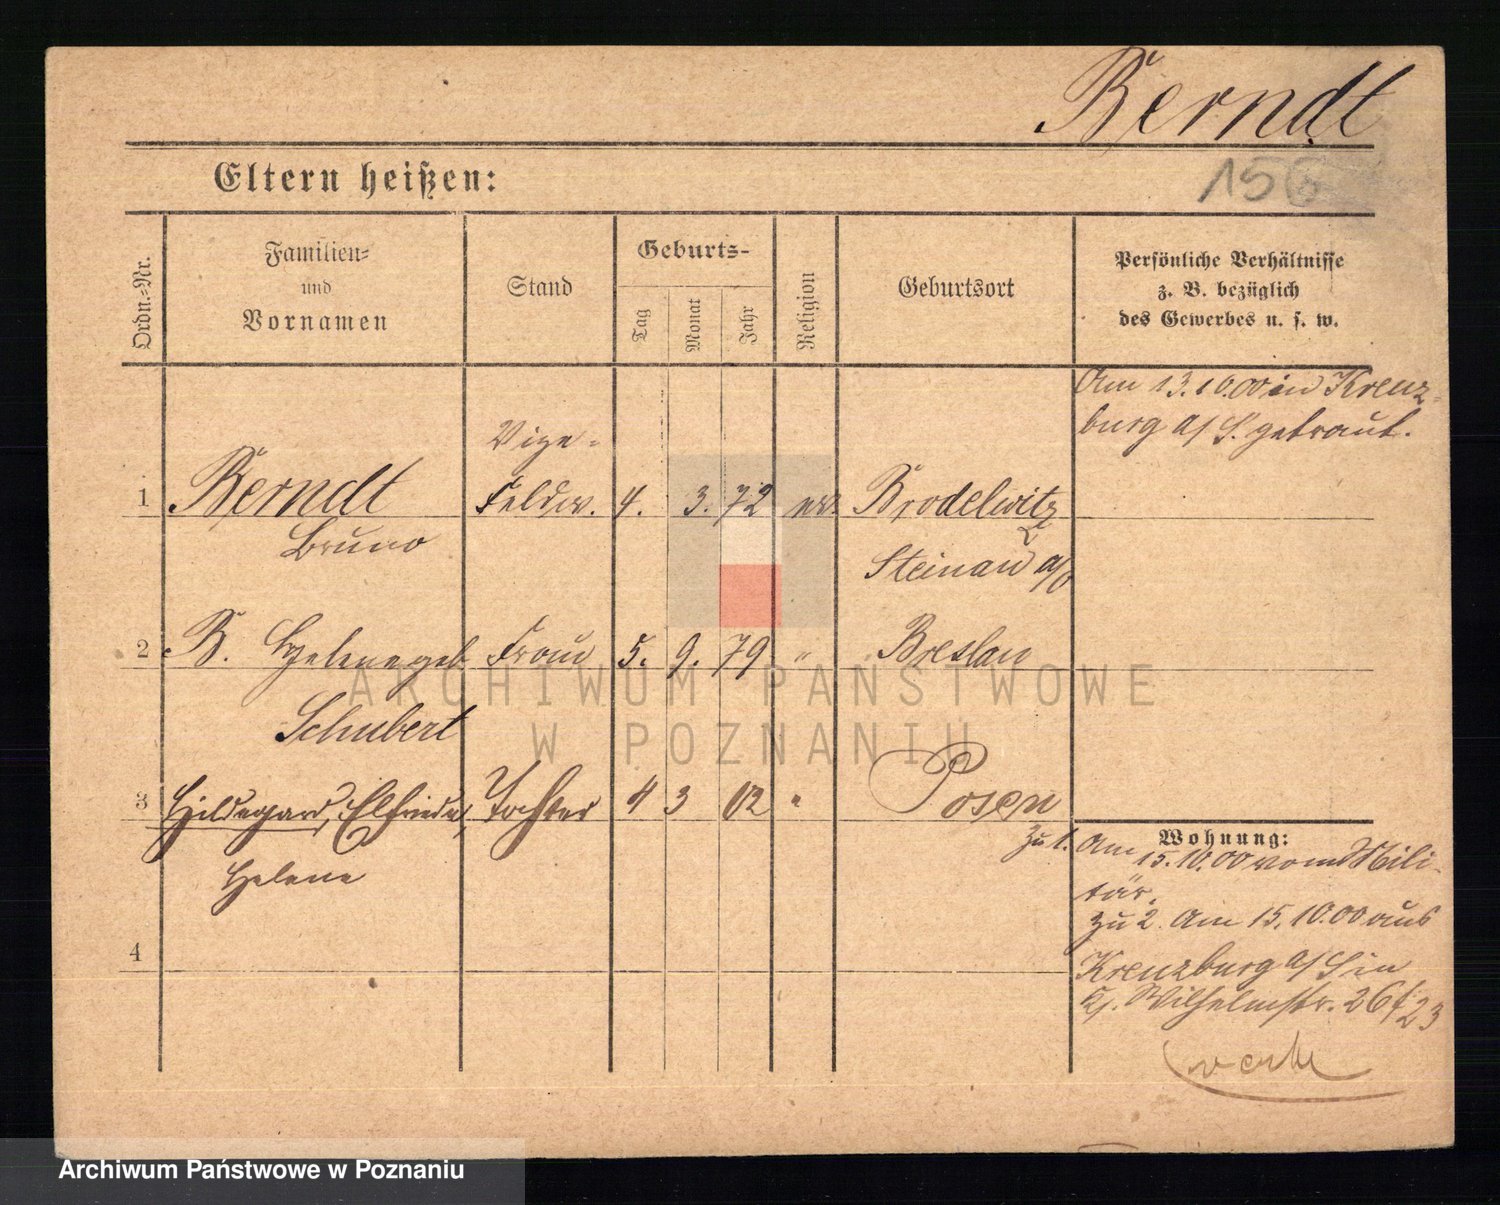 Berndt
156
Eltern heißen:
Ordn.-Nr.
Familien-
und
Vornamen
Stand
Geburts-
Tag
Monat
Jahr
Religion
Geburtsort
Persönliche Verhältnisse
z. B. bezüglich
des Gewerbes u. s. w.
Am 13.10.00 in Kreuz-
burg a/S. getraut.
Vize-
1 Berndt Feldw. 4. 3. 72 ev. Brodelwitz
Bruno
Steinau a/O
2 B. Helene geb. Frau 5. 9. 79 " Breslau
Schubert
3 Hildegard, Elfriede, Tochter 4 3 02 " Posen
Helene
4
Wohnung:
Zu 1. Am 15.10.00 vom Mili-
tär.
Zu 2. Am 15.10.00 aus
Kreuzburg a/S in
Wilhelmstr. 26 / 23
ARCHIWUM PAŃSTWOWE
W POZNANIU
Archiwum Państwowe w Poznaniu